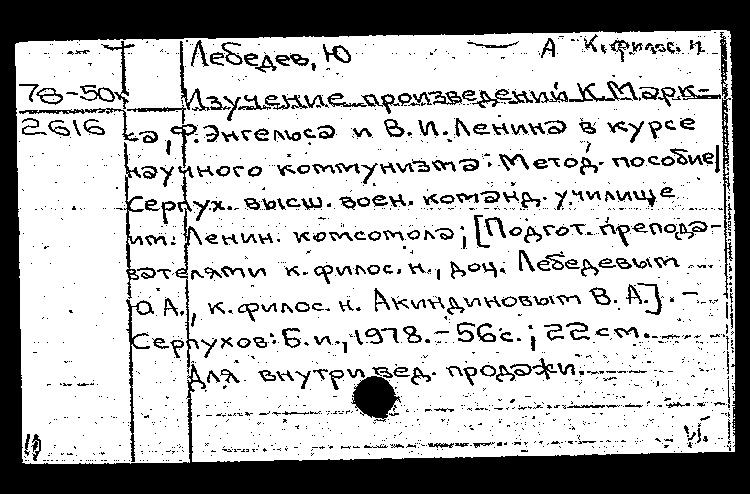 Лебедев, Ю А к. филос. н
78-50к Изучение произведений К. Марк-
2616 са, Ф. Энгельса и В. И. Ленина в курсе
научного коммунизма: Метод. пособие /
Серпух. высш. воен. команд. училище
им. Ленин. комсомола; [Подгот. препода-
вателями к. филос. н., доц. Лебедевым
Ю. А., к. филос. н. Акиндиновым В. А.]. –
Серпухов: Б. и., 1978. – 56 с.; 22 см.
Для внутривед. продажи.